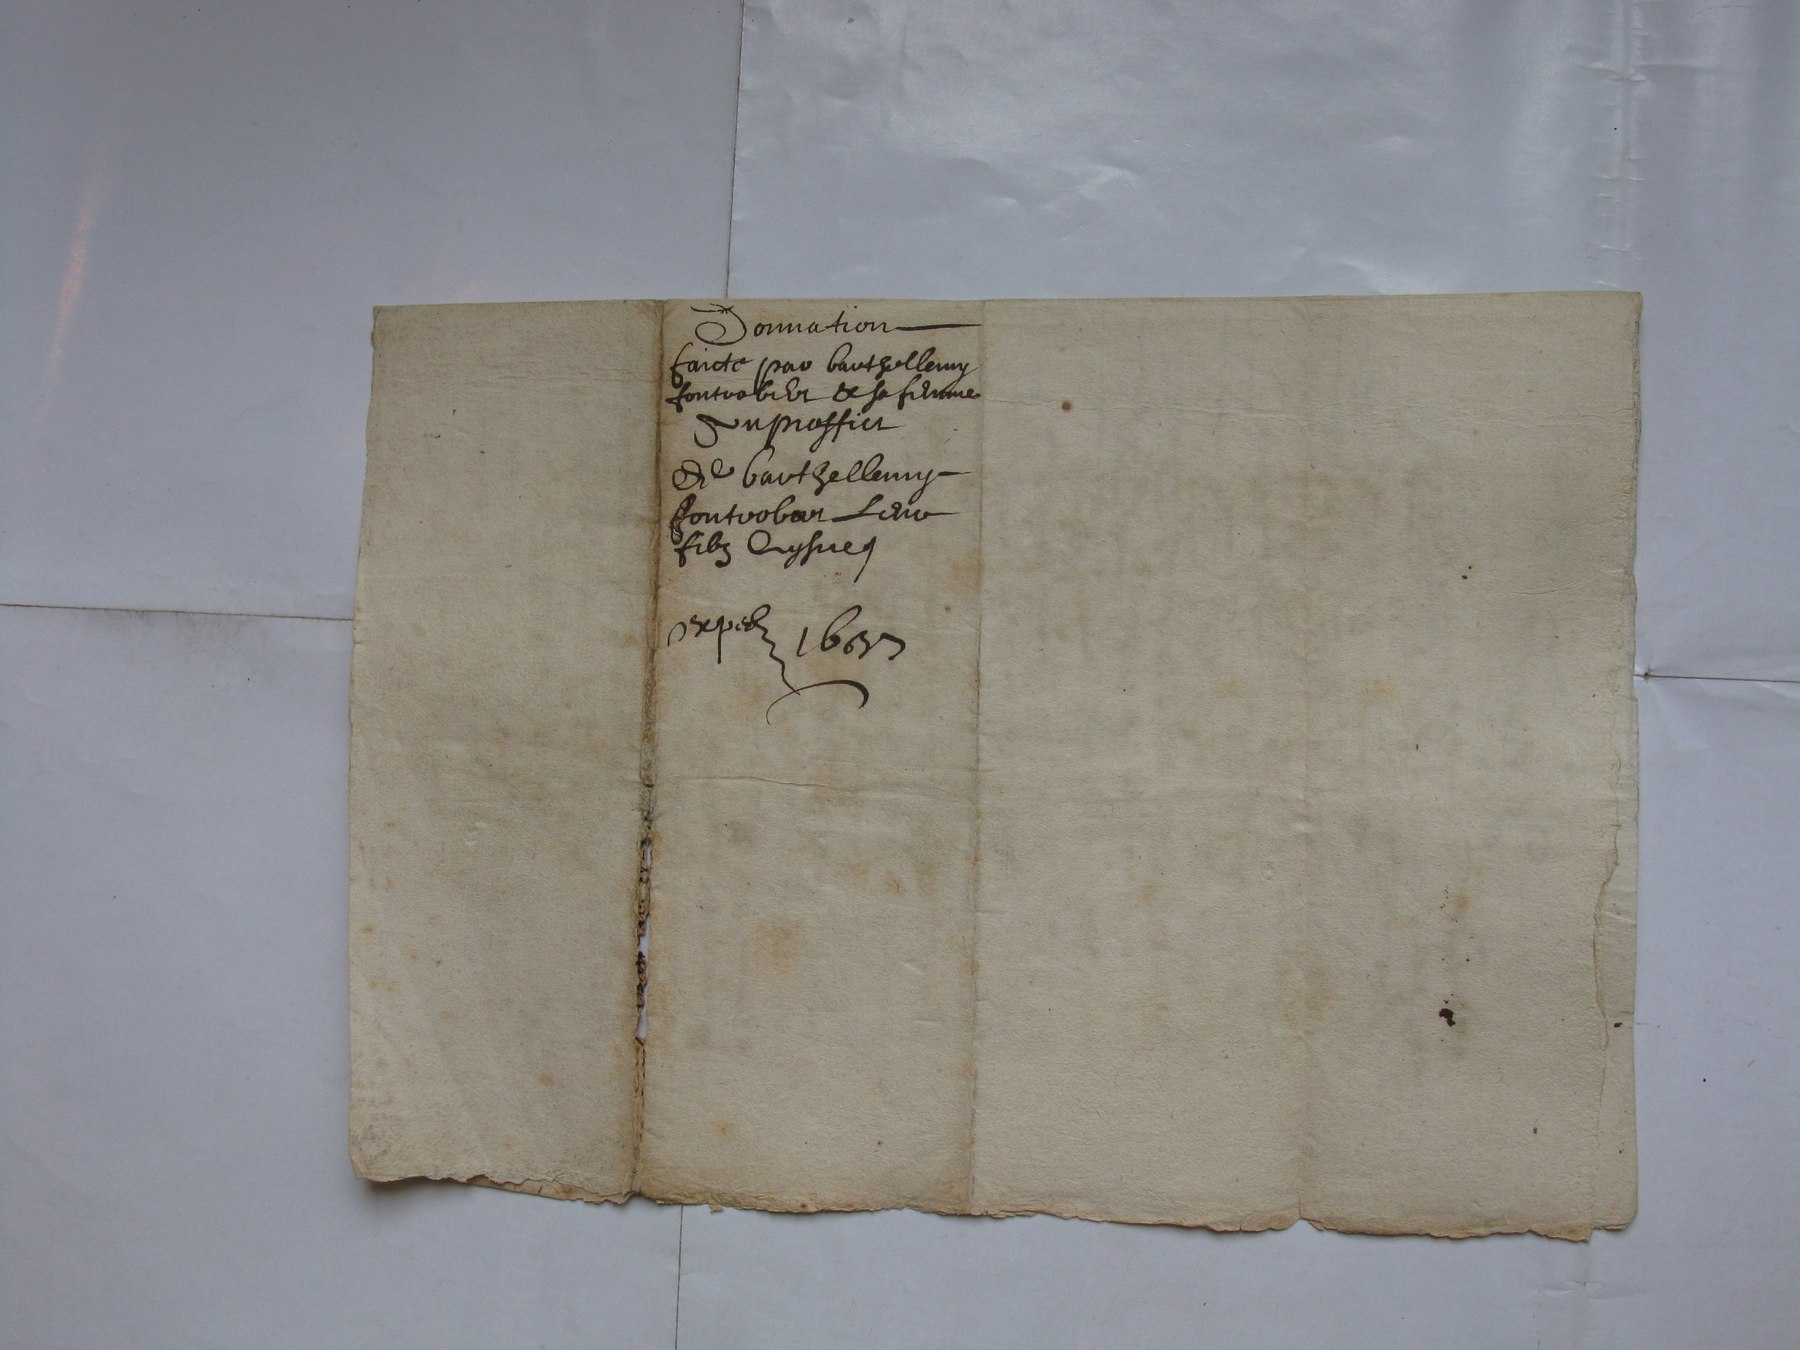 Donnation
faicte par barthellemy
fontrobert & sa femme
Au proffict
De barthellemy
fontrobert Leur
filz Aysné
exped